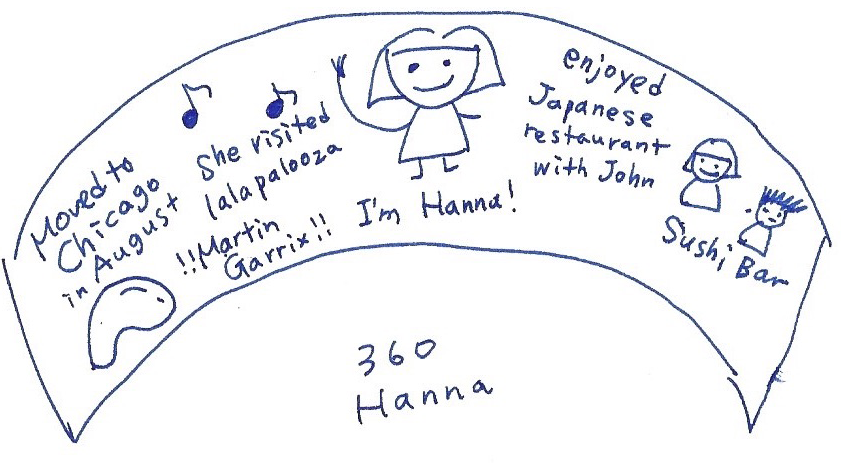 Moved to
Chicago
in August
She visited
lalapalooza
!!Martin
Garrix!!
I'm Hanna!
enjoyed
Japanese
restaurant
with John
Sushi Bar
360
Hanna